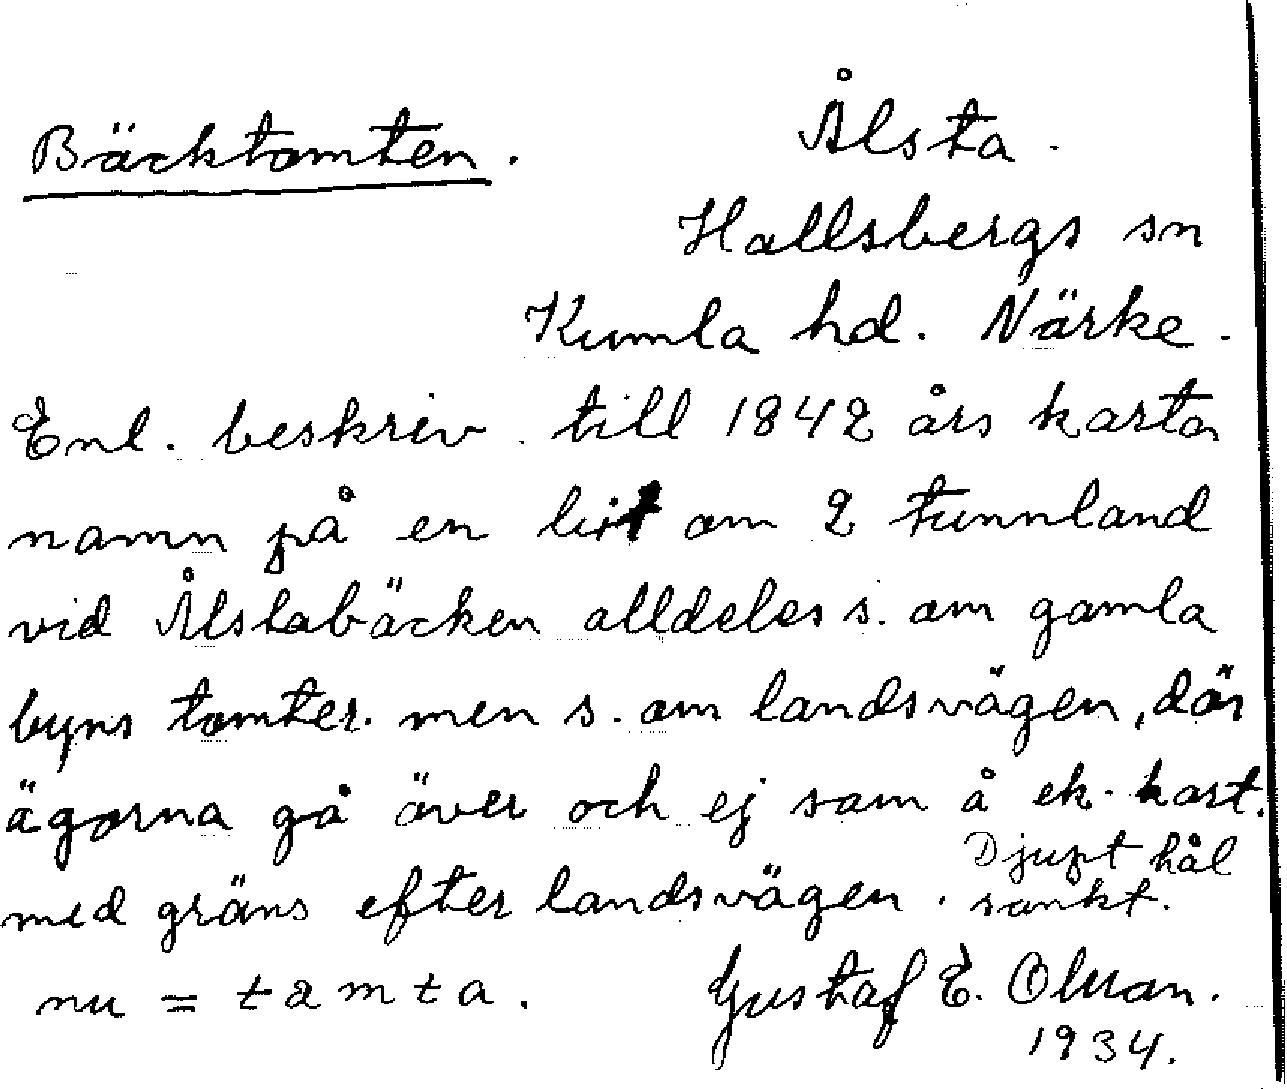 Bäcktomten.
Ålsta.
Hallsbergs sn
Kumla hd. Närke.
Enl. beskriv. till 1842 års karta
namn på en bit om 2 tunnland
vid Ålstabäcken alldeles s. om gamla
byns tomter. men s. om landsvägen, där
ägorna gå över och ej som å ek. kart.
med gräns efter landsvägen. Djupt hål
sankt.
nu = tamta. Gustaf E. Olman.
1934.